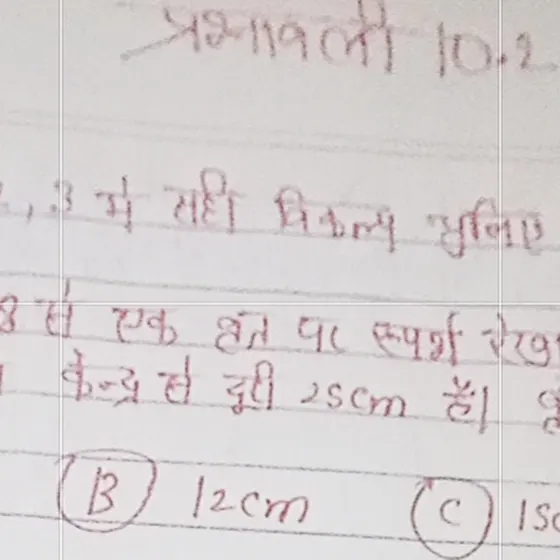 प्रश्नावली 10.2
, 3 में सही विकल्प चुनिए
से एक वृत्त पर स्पर्श रेखा
केन्द्र से दूरी 25cm है।
B 12cm C 15c